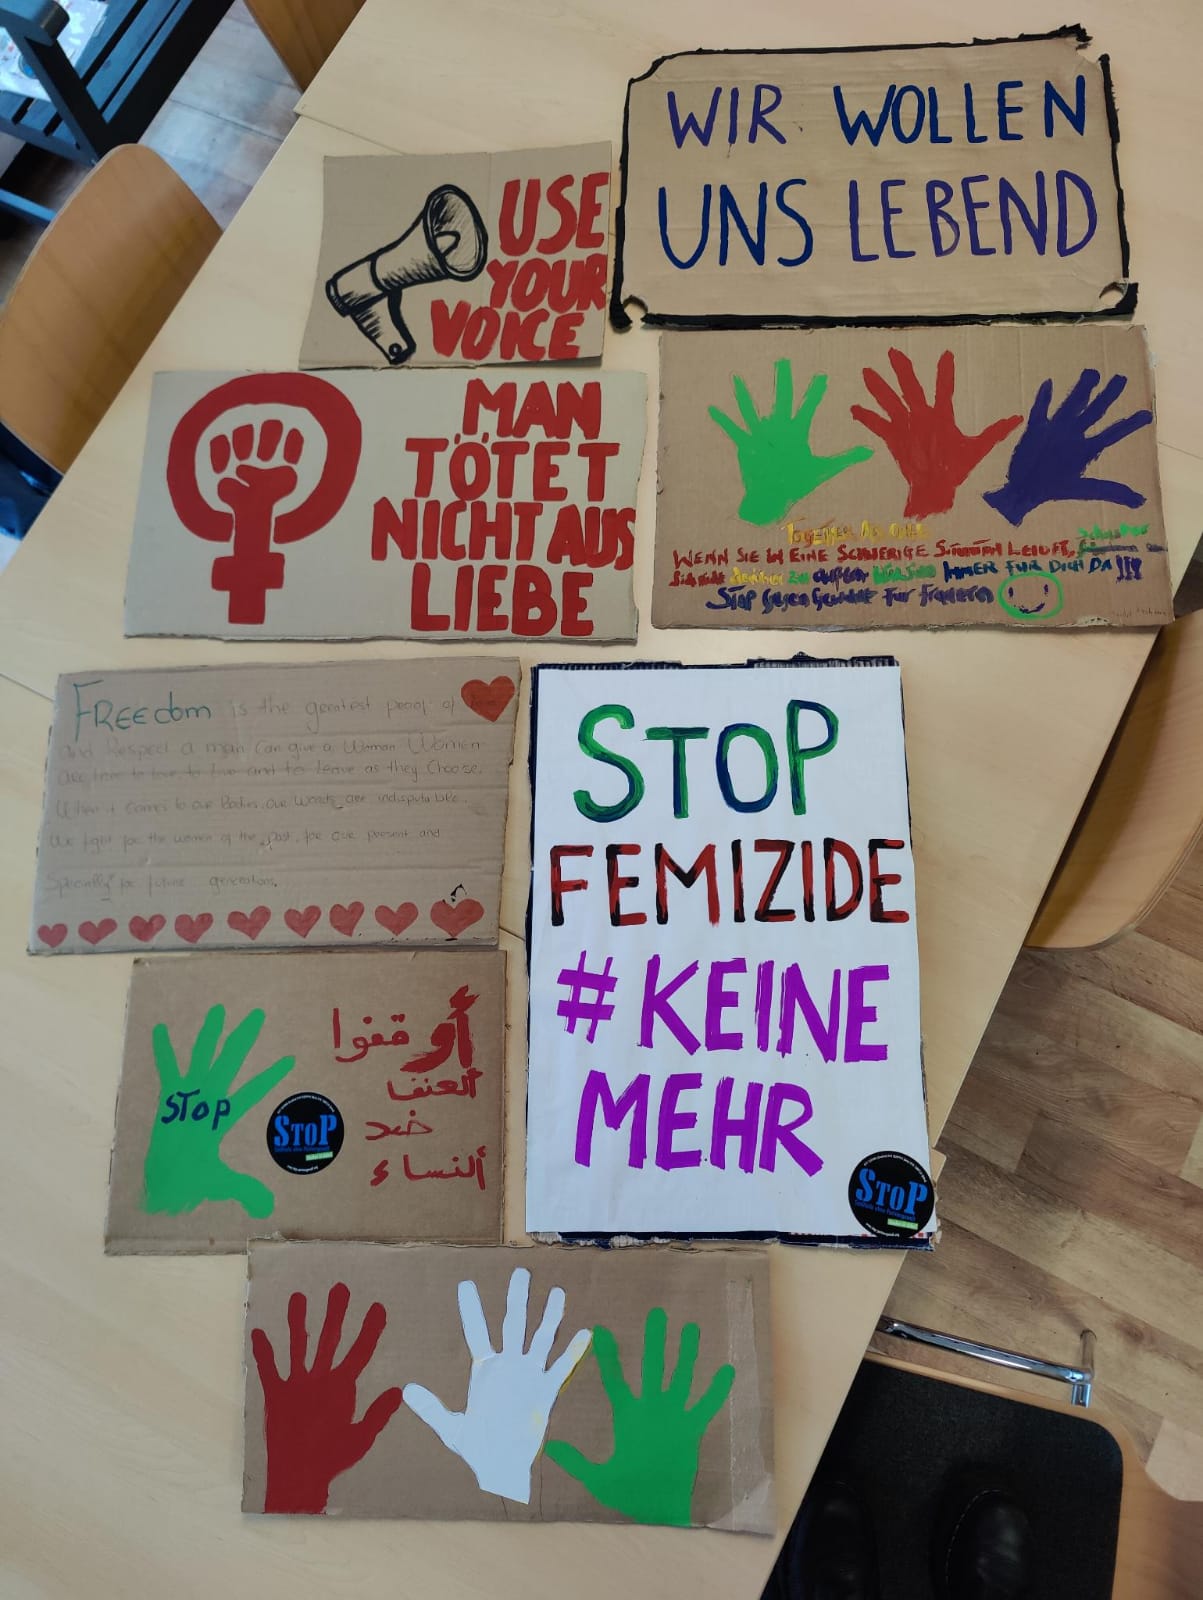 WIR WOLLEN
UNS LEBEND
USE
YOUR
VOICE
MAN
TÖTET
NICHT AUS
LIEBE
TOGETHER AS ONE
WENN SIE IN EINE SCHWIERIGE
IMMER FÜR DICH DA!!!
STOP gegen Gewalt für Frauen
FREEdom is the greatest proof of
and Respect a man can give a Woman Women
are free to love to live and to leave as they choose.
When it comes to our Bodies our Words are indisputable.
We fight for the women of the past, for our present and
Specially for future generations.
STOP
FEMIZIDE
#KEINE
MEHR
STOP
أوقفوا
ألعنف
ضد
ألنساء
STOP
STOP